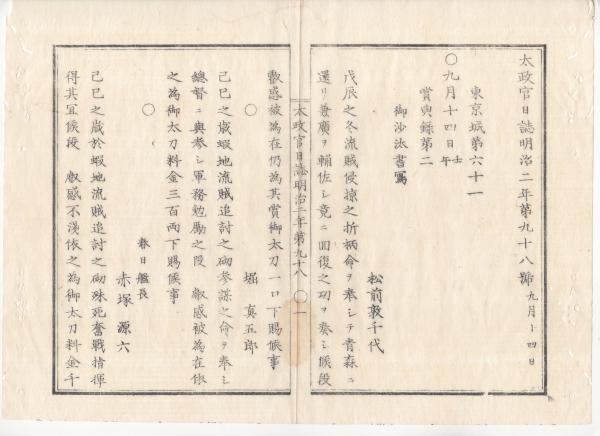 太政官日誌明治二年第九十八號 九月十四日
東京城第六十一
〇九月十四日 壬午
賞典錄第二
御沙汰書寫
松前敦千代
戊辰之冬流賊侵掠之折柄命ヲ奉シテ青森ニ
還リ兼廣ヲ輔佐シ竟ニ回復之功ヲ奏シ候段
太政官日誌明治二年第九十八 〇 一
叡感被為在仍為其賞御太刀一口下賜候事
〇
堀真五郎
己巳之歳蝦地流賊追討之砌參謀之命ヲ奉シ
總督ニ與參シ軍務勉勵之段 叡感被為在依
之為御太刀料金三百兩下賜候事
〇
春日艦長
赤塚源六
己巳之歳於蝦地流賊追討之砌殊死奮戰指揮
得其宜候段 叡感不淺依之為御太刀料金千